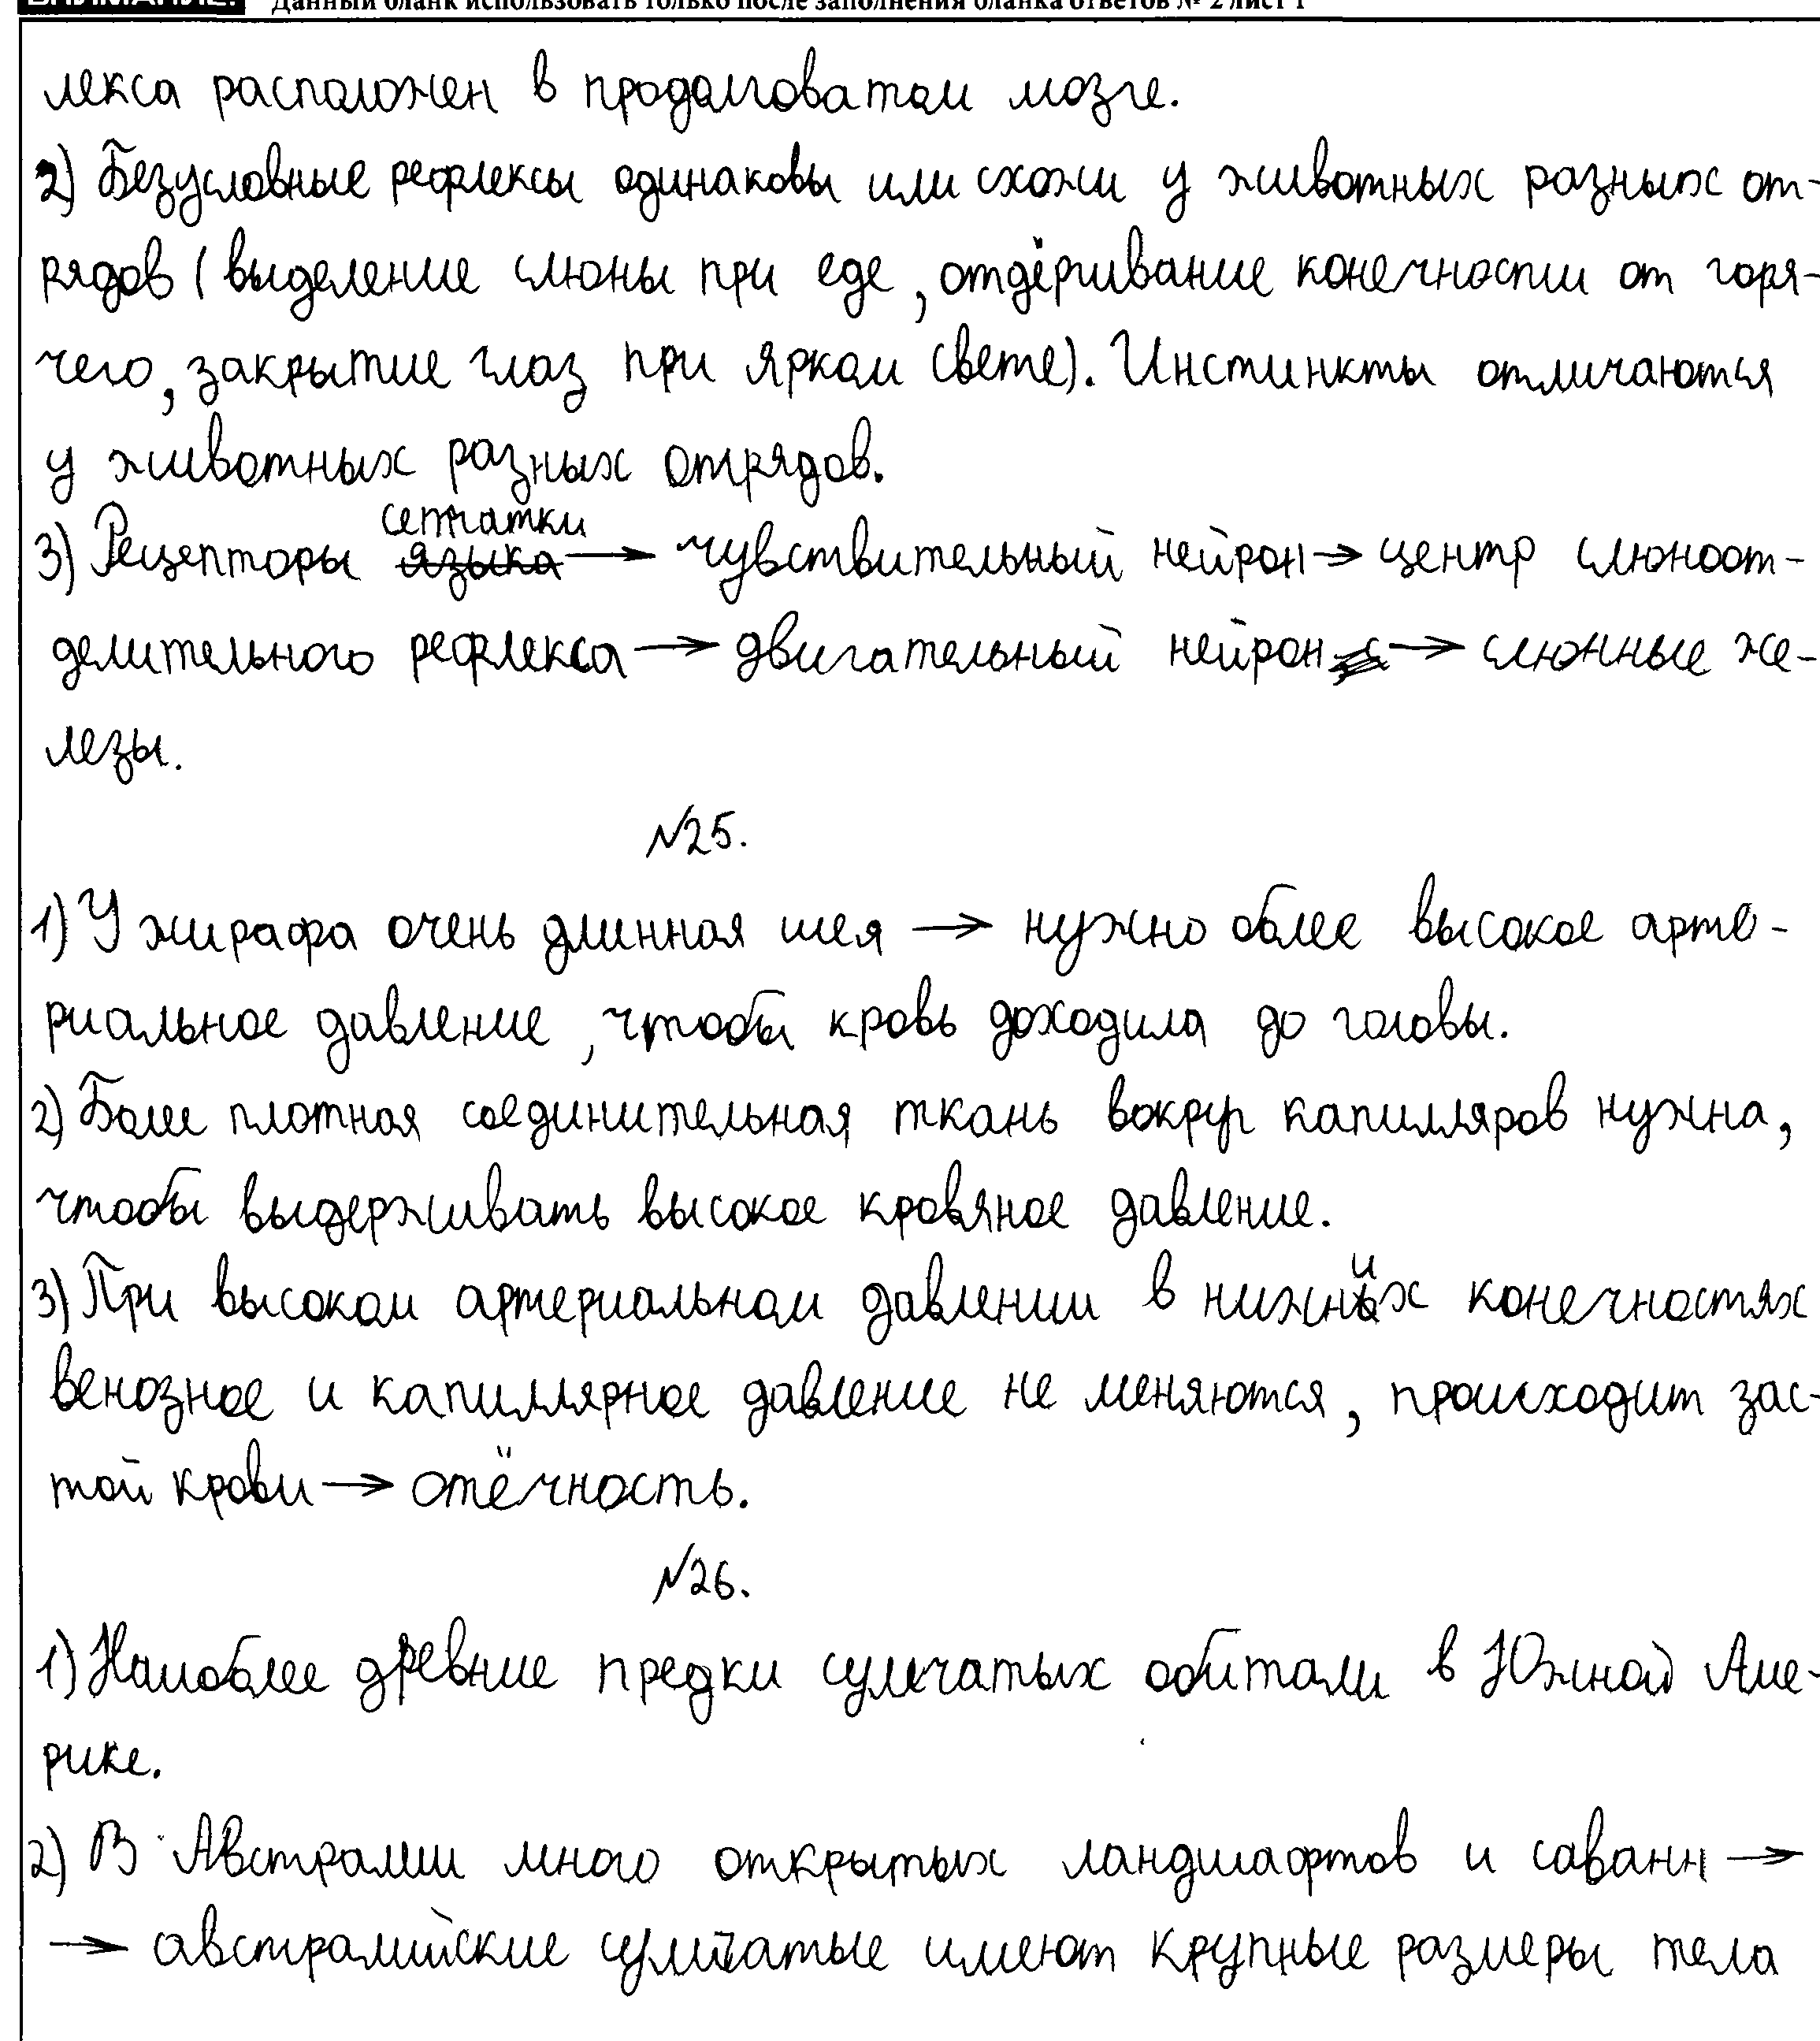 ВНИМАНИЕ! Данный бланк использовать только после заполнения бланка ответов № 2 лист 1
лекса расположен в продолговатом мозге.
2) Безусловные рефлексы одинаковы или схожи у животных разных от-
рядов (выделение слюны при еде, отдёргивание конечности от горя-
чего, закрытие глаз при ярком свете). Инстинкты отличаются
у животных разных отрядов.
сетчатки
3) Рецепторы языка → чувствительный нейрон → центр слюноот-
делительного рефлекса → двигательный нейрон → слюнные же-
лезы.
№25.
1) У жирафа очень длинная шея → нужно более высокое арте-
риальное давление, чтобы кровь доходила до головы.
2) Более плотная соединительная ткань вокруг капилляров нужна,
чтобы выдерживать высокое кровяное давление.
3) При высоком артериальном давлении в нижних конечностях
венозное и капиллярное давление не меняются, происходит зас-
той крови → отёчность.
№26.
1) Наиболее древние предки сумчатых обитали в Южной Аме-
рике.
2) В Австралии много открытых ландшафтов и саванн →
→ австралийские сумчатые имеют крупные размеры тела